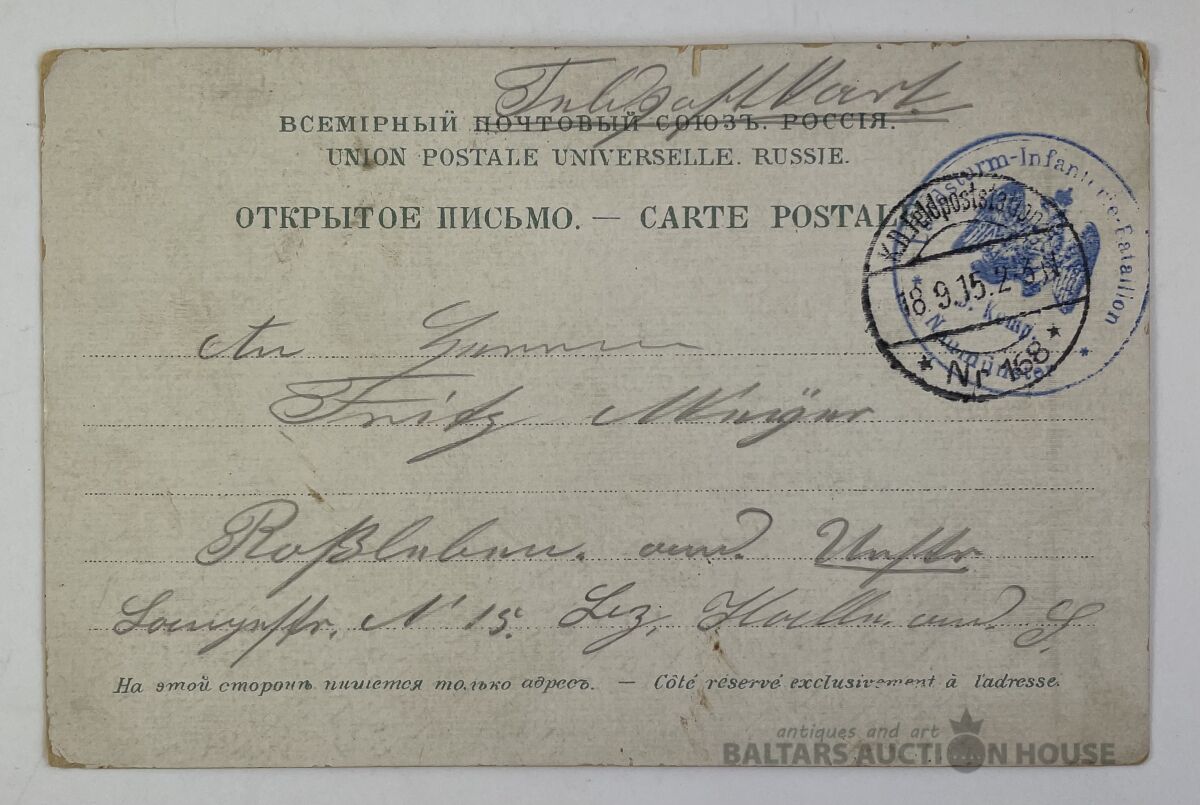 Feldpostkarte
ВСЕМІРНЫЙ ПОЧТОВЫЙ СОЮЗЪ. РОССІЯ.
UNION POSTALE UNIVERSELLE. RUSSIE.
ОТКРЫТОЕ ПИСЬМО. — CARTE POSTALE
K.D. Feldpoststation
18.9.15. 2-3N
* Nr 168 *
dsturm-Infanterie-Bataillon
Komp.
Neumünster
An Herrn
Fritz Meÿer
Roßleben. and. Unstr
Langestr. N 15. Bez. Halle. and. S
На этой сторонѣ пишется только адресъ. — Côté réservé exclusivement à l'adresse.
antiques and art
BALTARS AUCTION HOUSE